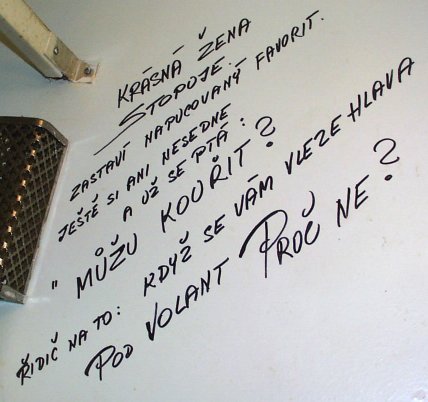 KRÁSNÁ ŽENA
STOPUJE.
ZASTAVÍ NAPUCOVANÝ FAVORIT.
JEŠTĚ SI ANI NESEDNE
A UŽ SE PTÁ:
" MŮŽU KOUŘIT?
ŘIDIČ NA TO: KDYŽ SE VÁM VLEZE HLAVA
POD VOLANT PROČ NE?